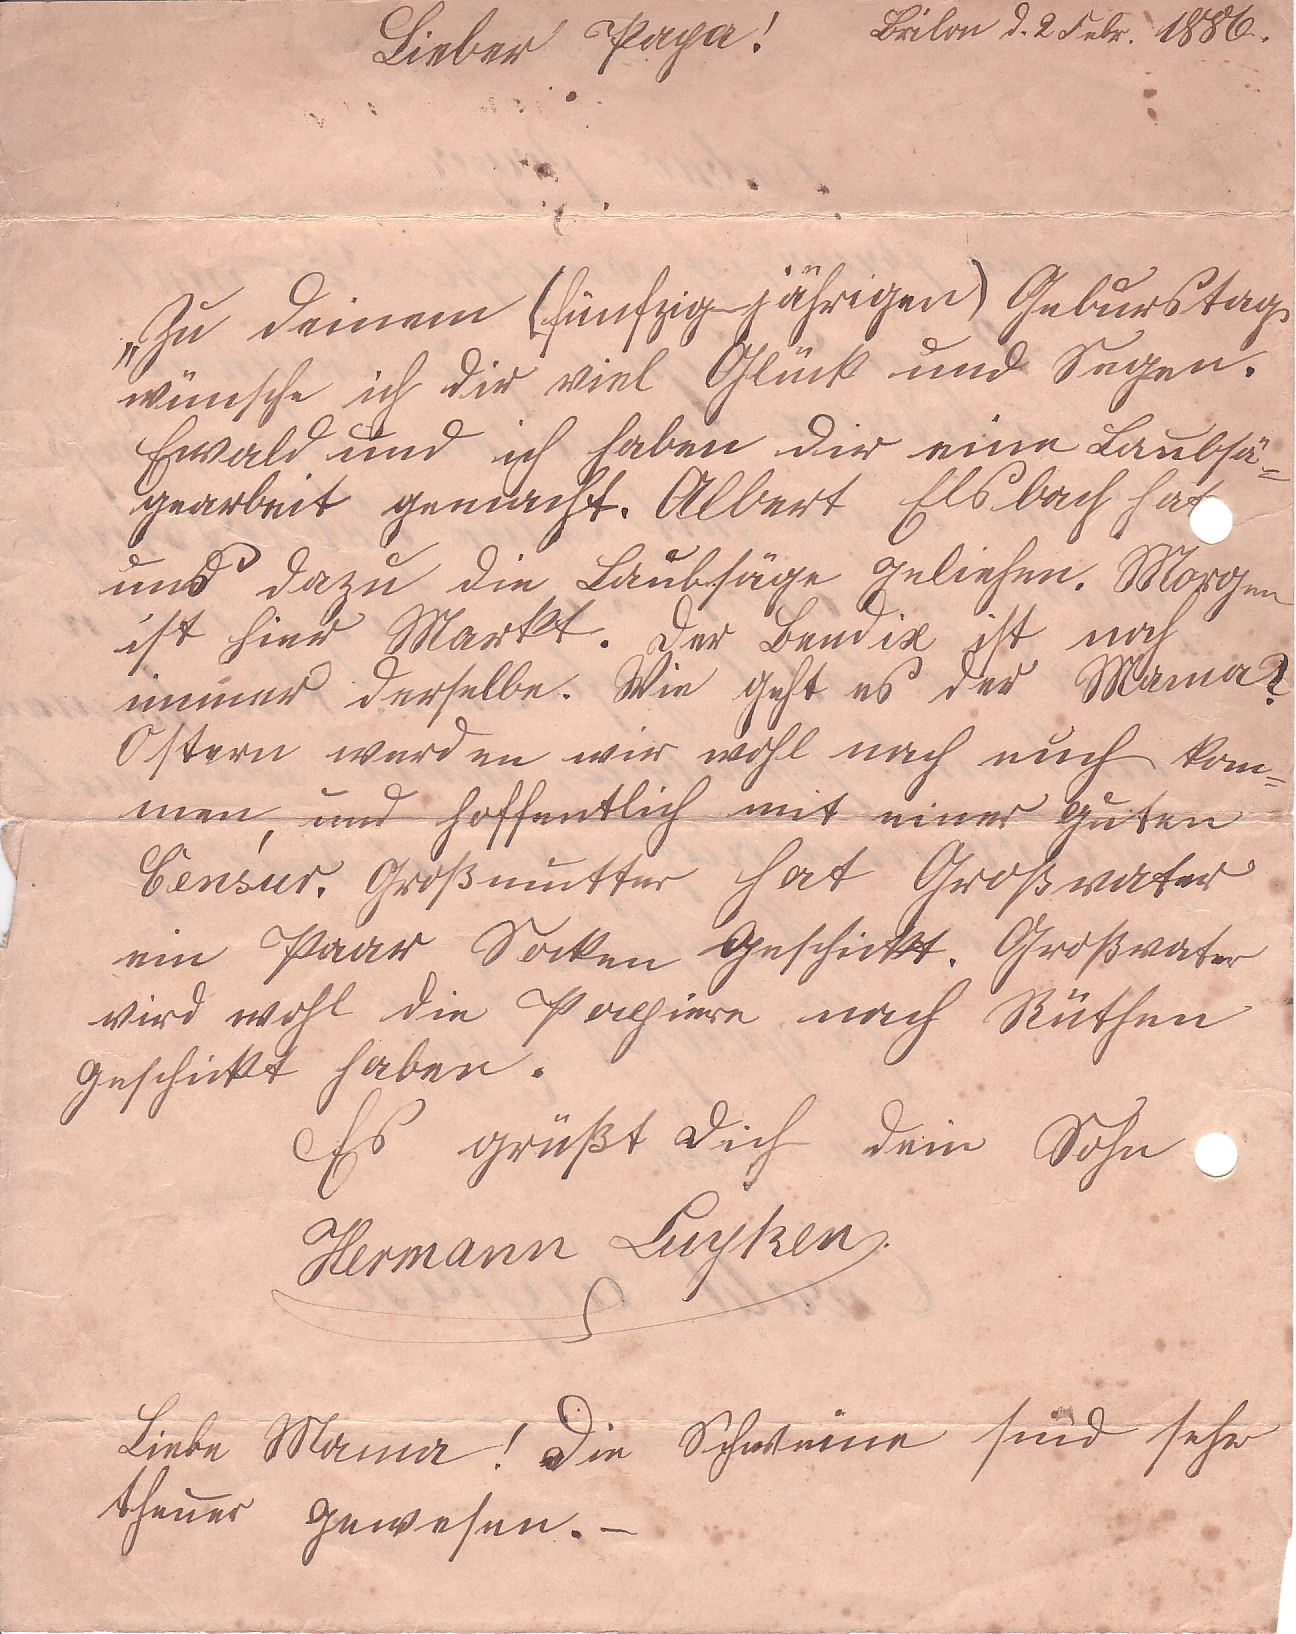 Lieber Papa! Brilon d. 2 Febr. 1886.
„Zu deinem (fünfzig-jährigen) Geburstag
wünsche ich dir viel Glück und Segen.
Ewald und ich haben dir eine Laubsä-
gearbeit gemacht. Albert Elsbach hat
uns dazu die Laubsäge geliehen. Morgen
ist hier Markt. Der Bendix ist noch
immer derselbe. Wie geht es der Mama?
Ostern werden wir wohl nach euch kom-
men, und hoffentlich mit einer guten
Censur. Großmutter hat Großvater
ein Paar Socken geschickt. Großvater
wird wohl die Papiere nach Rüthen
geschickt haben.
Es grüßt Dich dein Sohn
Hermann Luyken.
Liebe Mama! Die Schweine sind sehr
theuer gewesen. –